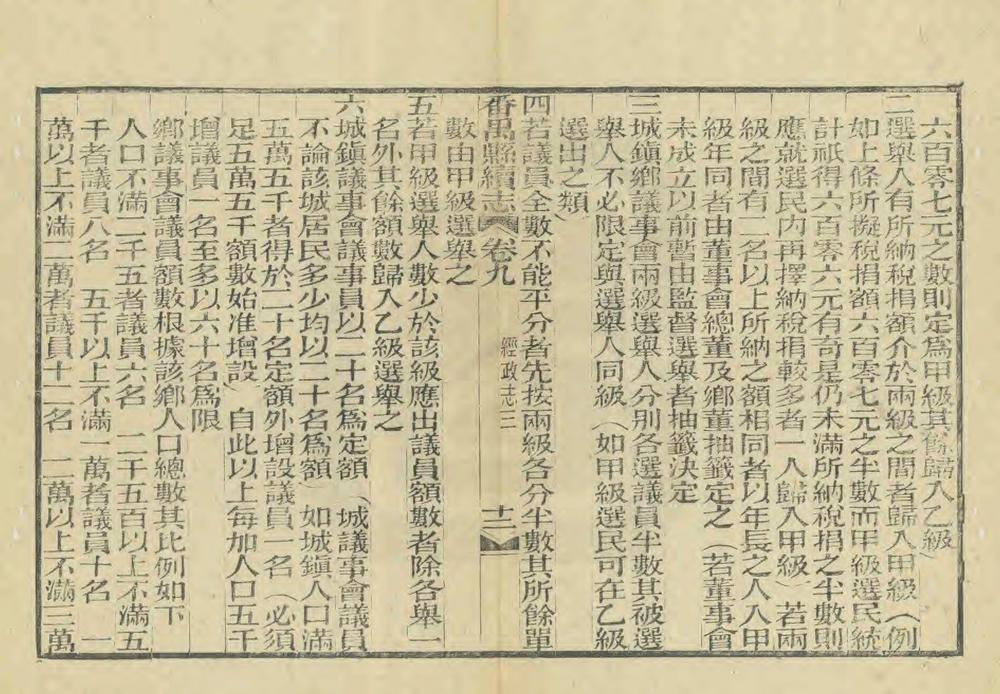 六百零七元之數則定爲甲級其餘歸入乙級）
二選舉人有所納稅捐額介於兩級之間者歸入甲級（例
如上條所擬稅捐額六百零七元之半數而甲級選民統
計祇得六百零六元有奇是仍未滿所納稅捐之半數則
應就選民內再擇納稅捐較多者一人歸入甲級）若兩
級之間有二名以上所納之額相同者以年長之人入甲
級年同者由董事會總董及鄉董抽籤定之（若董事會
未成立以前暫由監督選舉者抽籤決定
三城鎮鄉議事會兩級選舉人分別各選議員半數其被選
舉人不必限定與選舉人同級（如甲級選民可在乙級
選出之類）
四若議員全數不能平分者先按兩級各分半數其所餘單
番禺縣續志 卷九 經政志三 十二
數由甲級選舉之
五若甲級選舉人數少於該級應出議員額數者除各舉一
名外其餘額數歸入乙級選舉之
六城鎮議事會議事員以二十名爲定額（城議事會議員
不論該城居民多少均以二十名爲額）如城鎮人口滿
五萬五千者得於二十名定額外增設議員一名（必須
足五萬五千額數始准增設）自此以上每加人口五千
增議員一名至多以六十名爲限
鄉議事會議員額數根據該鄉人口總數其比例如下
人口不滿二千五者議員六名 二千五百以上不滿五
千者議員八名 五千以上不滿一萬者議員十名 一
萬以上不滿二萬者議員十二名 二萬以上不滿三萬